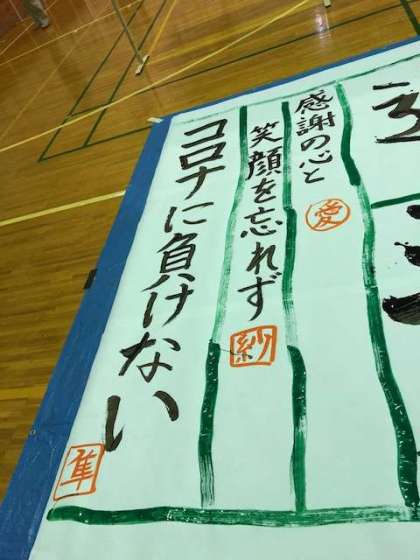 感謝の心と
愛
笑顔を忘れず
紗
コロナに負けない
隼